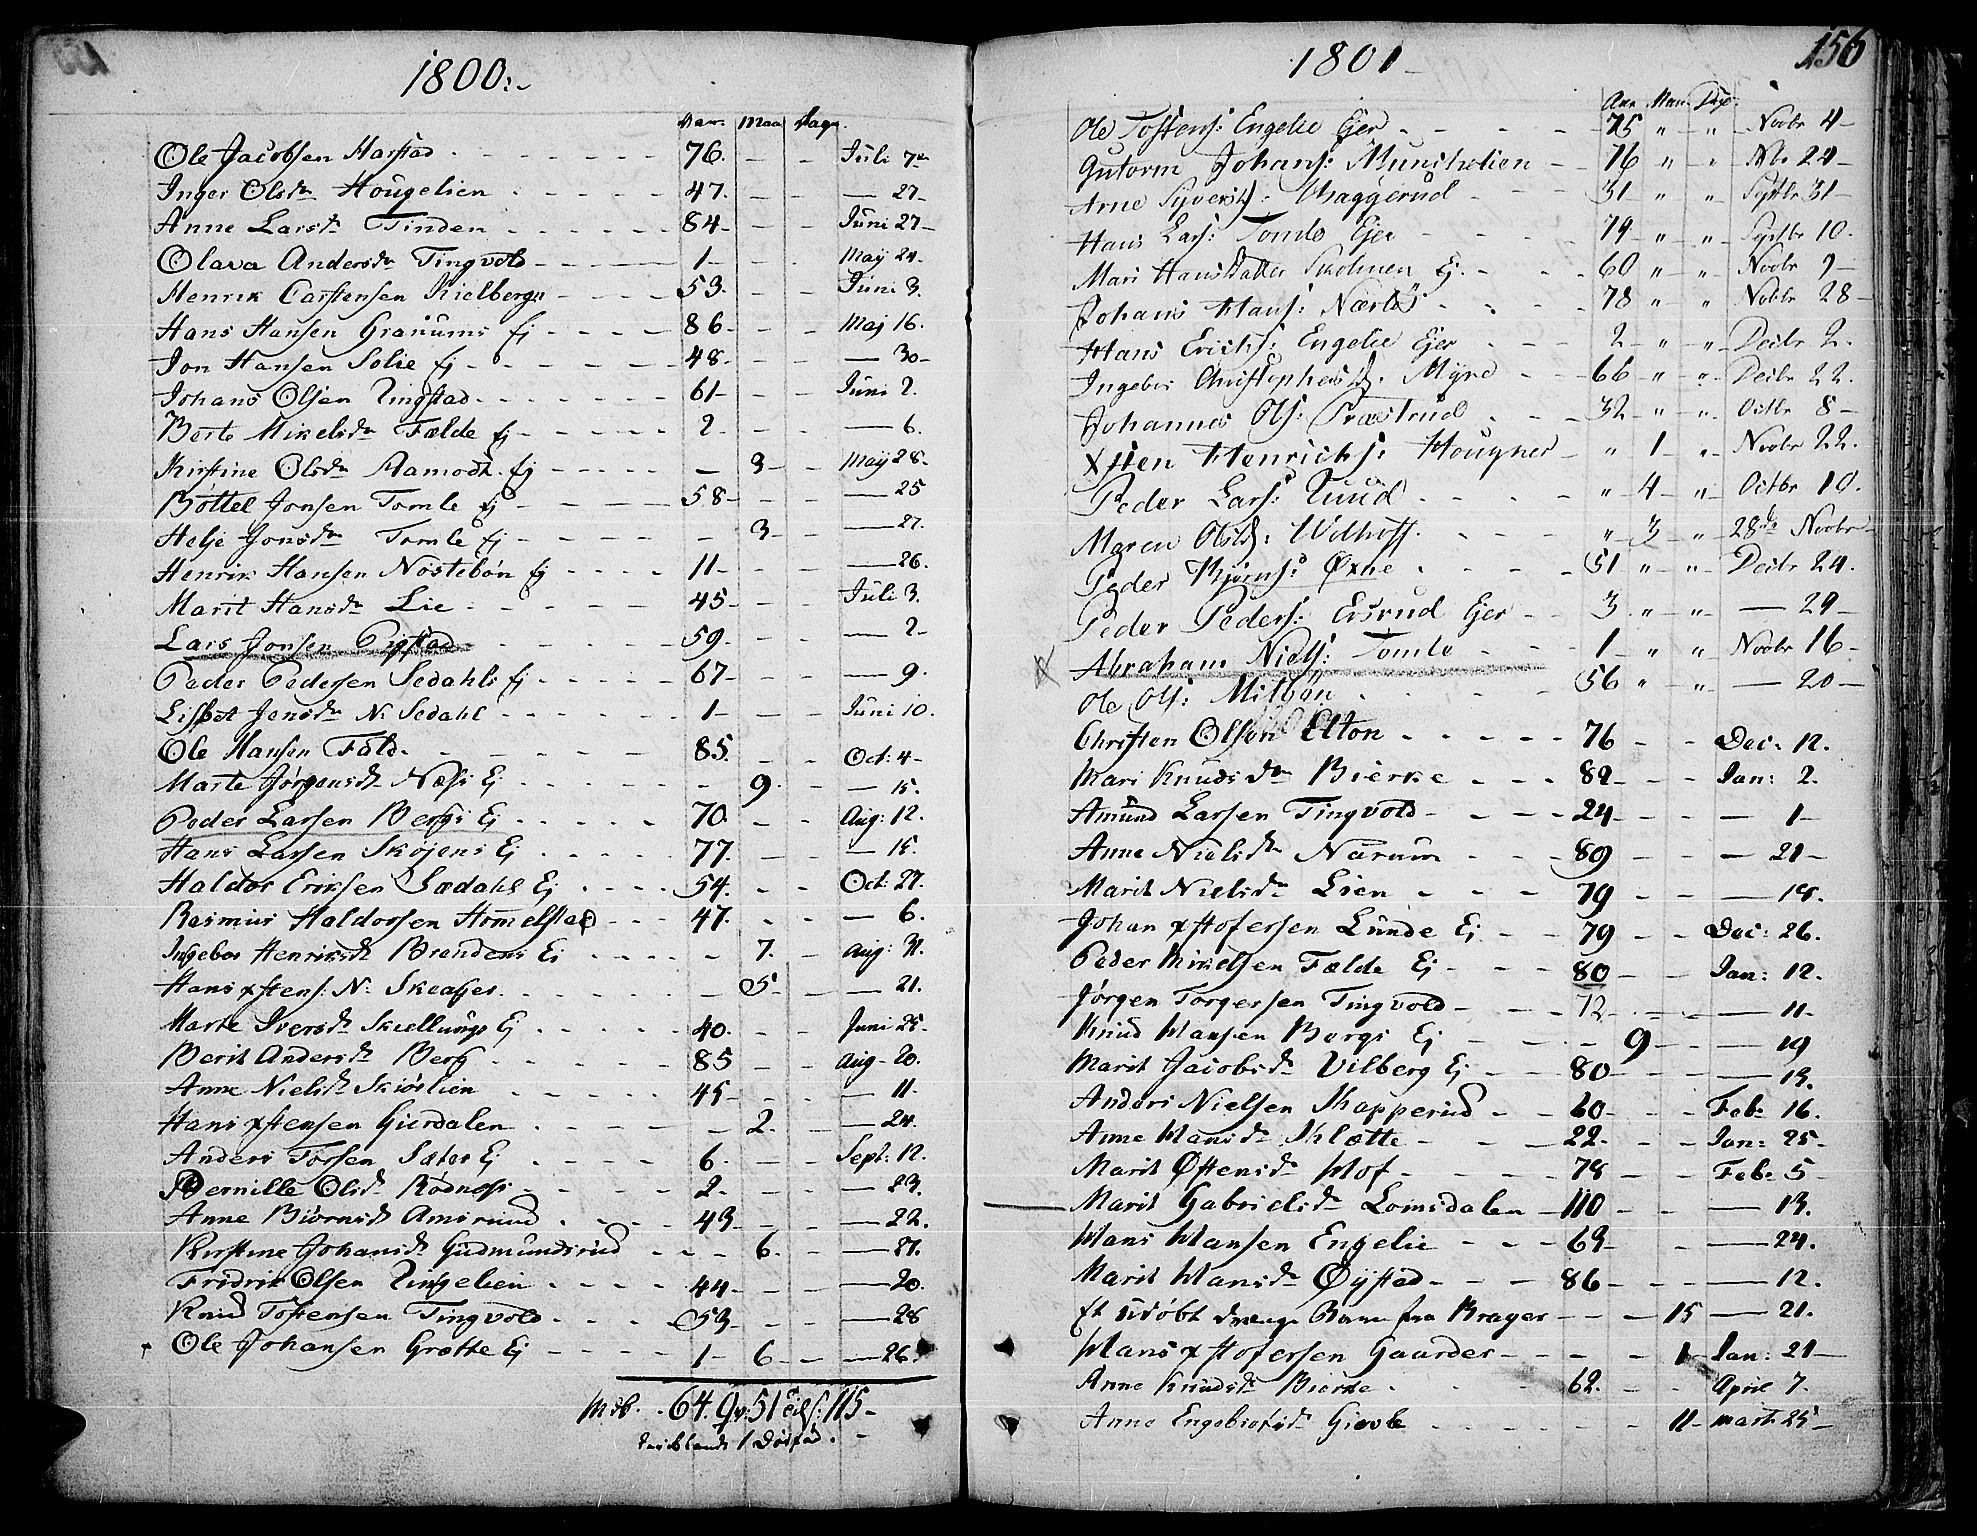 1800.
Aar. Maa. Dage.
Ole Jacobsen Harstad 76. Juli 7de
Inger Olsdr Hougelien 47. — 27
Anne Larsdr Tinden 84 Juni 27
Olava Andersdr Tingvold 1 Maÿ 24.
Henrik Carstensen Kielbergs 53. Juni 3.
Hans Hansen Granums Ej 86 Maj 16.
Jon Hansen Solie Ej 48. — 30
Johans Olsen Ringstad 61 Juni 2.
Berte Mikelsdr Fælde Ej 2 — 6.
Kirstine Olsdr Aamodt Ej — 3 Maÿ 28.
Bottel Jonsen Tomle Ej 58 — 25
Helje Jonsdr Tomle Ej 3 — 27.
Henrik Hansen Nöstebön Ej 11 — 26.
Marit Hansdr Lie 45 Juli 3.
Lars Jonsen 59. — 2
Peder Pedersen Sedahls Ej 67 — 9.
Lisbet Jensdr N. Sedahl 1 Juni 10.
Ole Hansen Fald. 85. Oct: 4
Marte Jørgensdr Næss Ej 9. — 15.
Peder Larsen Bergs Ej 70. Aug: 12.
Hans Larsen Skojens Ej 77. — 15.
Haldor Eriksen Sædahl Ej 54. Oct: 27.
Rasmus Haldorsen Hommelstad 47. — 6.
Ingebor Henriksdr Brendens Ej 7. Aug: 31.
Hans xstens: N: 5 — 21.
Marte Iversdr Skiellungs Ej 40. Juni 25
Berit Andersdr Berg 85 Aug 20.
Anne Nielsdr Skiøslien 45 — 11.
Hans xstensen Gierdalen 2. — 24.
Anders Torsen Sæter Ej 6. Sept: 12.
Pernille Olsdr Rodness 2. — 23.
Anne Biørnsdr Amsrund 43 — 22.
Kirstine Johansdr Gudmundsrud 6. — 27.
Fridrik Olsen Ringelien 44 — 20.
Knud Tostensen Tingvold 53 — 28
Ole Johansen Grøtte Ej 1 6 — 26
Mdk. 64. Qv: 51 tils: 115
1 Dødfød.
1801
156
Aar Man. Dage.
Ole Tostens: Engelie Ejer 75 " " Novbr 4
Gutorm Johans: Munschelien 76 " " No. 24
Arne Syversd: Chaggerud 31 " " Sptbr 31
Hans Lars: Tomle Ejer 74 " " Sptbr 10.
Mari Hansdatter Skolmen Ej. 60 " " Novbr 9
Johans Hans: Nærbÿ 78 " " Novbr 28
Hans Erichs: Engelie Ejer 2 " " Decbr 2.
Ingebor Christophersd: Myre 66 " " Decbr 22.
Johannes Ols: Præstrud 32 " " Octbr 8
Xsten Henrichs: Hougner " 1 " Novbr 22.
Peder Lars: Ruud " 4 " Octbr 10.
Maren Olsd: Wolhoff. " 3 " 28de Novbr
Peder Bjørns: Øxne 51 " " Decbr 24.
Peder Peders: Eisrud Ejer 3 " " — 29
Abraham Niels: Tomle 1 " " Novbr 16
Ole Ols: Mitbön 56 " " — 20
Christen Olsen Elton 76 Dec: 12.
Mari Knudsdr Bierke 82 Jan: 2.
Amund Larsen Tingvold 24 — 1
Anne Nielsdr Narum 89 — 21
Marit Nielsdr Lien 79 — 15.
Johan xstofersen Lunde Ej 79 Dec: 26.
Peder Mikelsen Fælde Ej 80 Jan: 12.
Jørgen Torgersen Tingvold 72 — 11.
Knud Hansen Bergs Ej 9 — 19
Marit Jacobsdr Vilberg Ej 80 — 13.
Anders Nielsen Skapperud 60 Feb: 16.
Anne Hansdr Klætte 22. Jan: 25
Marit Østensdr Hof 78 Feb: 5
Marit Gabrielsdr Lomsdalen 110 — 13.
Hans Hansen Engelie 63 — 24.
Marit Hansdr Øystad 86 — 12.
Et udøbt Drenge Barn fra Brager 15 — 21.
Hans xstofersen Gaarder 1 Jan: 21
Anne Knudsdr Bierke 62. April 7.
Anne Engebretsdr Giøvle 11 Mart: 25